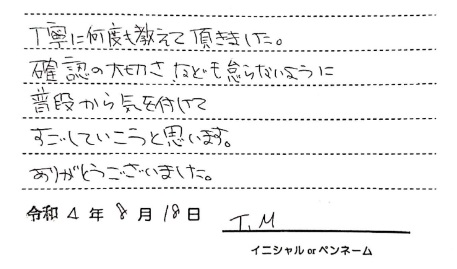 丁寧に何度も教えて頂きました。
確認の大切さなども怠らないように
普段から気を付けて
すごしていこうと思います。
ありがとうございました。
令和 4 年 8 月 18 日 T.M
イニシャル or ペンネーム